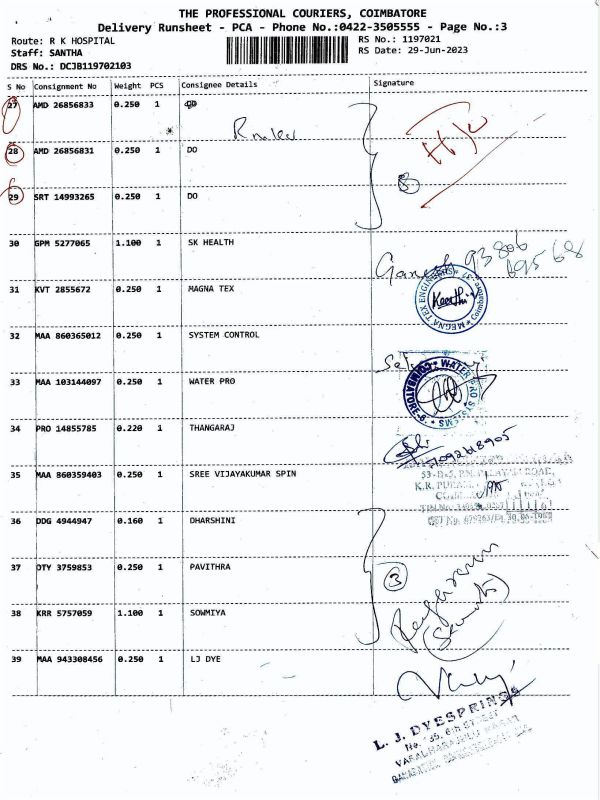 THE PROFESSIONAL COURIERS, COIMBATORE
Delivery Runsheet - PCA - Phone No.:0422-3505555 - Page No.:3
Route: R K HOSPITAL
Staff: SANTHA
DRS No.: DCJB119702103
RS No.: 1197021
RS Date: 29-Jun-2023
S No Consignment No Weight PCS Consignee Details Signature
27 AMD 26856833 0.250 1
28 AMD 26856831 0.250 1 DO
29 SRT 14993265 0.250 1 DO
3
30 GPM 5277065 1.100 1 SK HEALTH
Ganesh 93806
69568
31 KVT 2855672 0.250 1 MAGNA TEX
MEGNA TEX ENGINEERS Coimbatore
32 MAA 860365012 0.250 1 SYSTEM CONTROL
33 MAA 103144097 0.250 1 WATER PRO
WATER PRO SYSTEMS COIMBATORE
34 PRO 14855785 0.220 1 THANGARAJ
35 MAA 860359403 0.250 1 SREE VIJAYAKUMAR SPIN
36 DDG 4944947 0.160 1 DHARSHINI
37 DTY 3759853 0.250 1 PAVITHRA
3
38 KRR 5757059 1.100 1 SOWMIYA
39 MAA 943308456 0.250 1 LJ DYE
L. J. DYESPRING